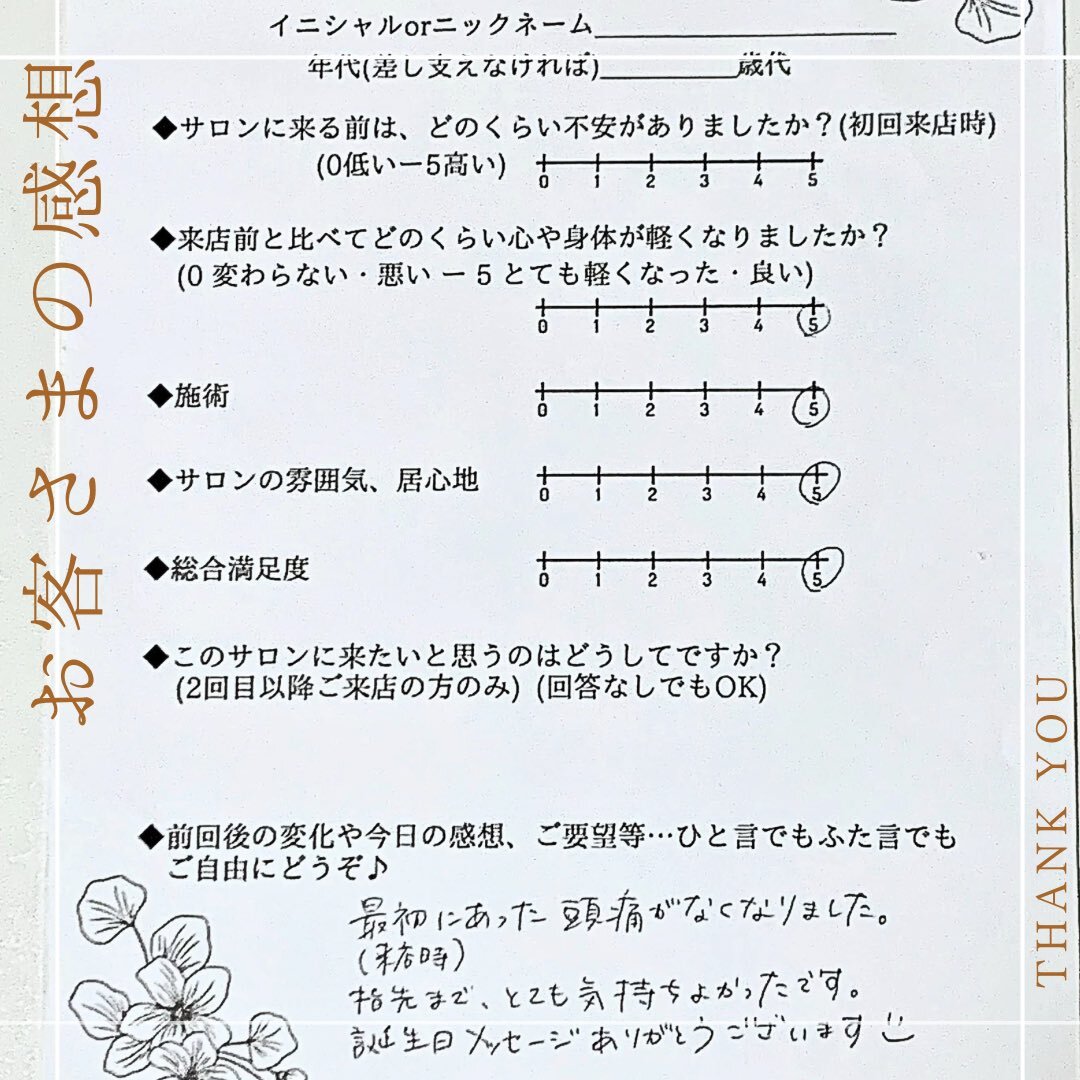 お客さまの感想
イニシャルorニックネーム
年代(差し支えなければ) 歳代
◆サロンに来る前は、どのくらい不安がありましたか？(初回来店時)
(0低いー5高い)
0 1 2 3 4 5
◆来店前と比べてどのくらい心や身体が軽くなりましたか？
(0 変わらない・悪い ー 5 とても軽くなった・良い)
0 1 2 3 4 5
◆施術
0 1 2 3 4 5
◆サロンの雰囲気、居心地
0 1 2 3 4 5
◆総合満足度
0 1 2 3 4 5
◆このサロンに来たいと思うのはどうしてですか？
(2回目以降ご来店の方のみ) (回答なしでもOK)
◆前回後の変化や今日の感想、ご要望等…ひと言でもふた言でも
ご自由にどうぞ♪
最初にあった頭痛がなくなりました。
(来店時)
指先まで、とても気持ちよかったです。
誕生日メッセージありがとうございます
THANK YOU